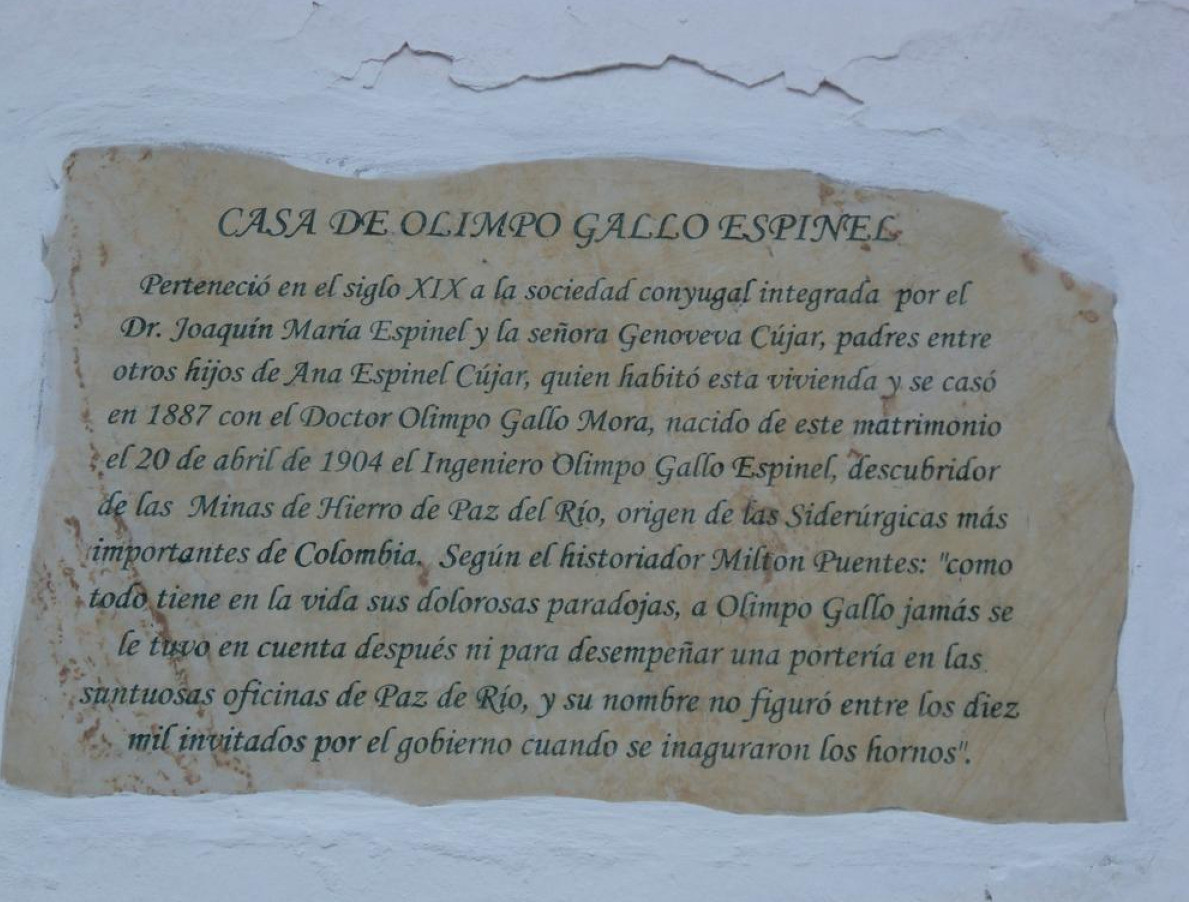 CASA DE OLIMPO GALLO ESPINEL
Perteneció en el siglo XIX a la sociedad conyugal integrada por el
Dr. Joaquín María Espinel y la señora Genoveva Cújar, padres entre
otros hijos de Ana Espinel Cújar, quien habitó esta vivienda y se casó
en 1887 con el Doctor Olimpo Gallo Mora, nacido de este matrimonio
el 20 de abril de 1904 el Ingeniero Olimpo Gallo Espinel, descubridor
de las Minas de Hierro de Paz del Río, origen de las Siderúrgicas más
importantes de Colombia. Según el historiador Milton Puentes: "como
todo tiene en la vida sus dolorosas paradojas, a Olimpo Gallo jamás se
le tuvo en cuenta después ni para desempeñar una portería en las
suntuosas oficinas de Paz de Río, y su nombre no figuró entre los diez
mil invitados por el gobierno cuando se inaguraron los hornos".